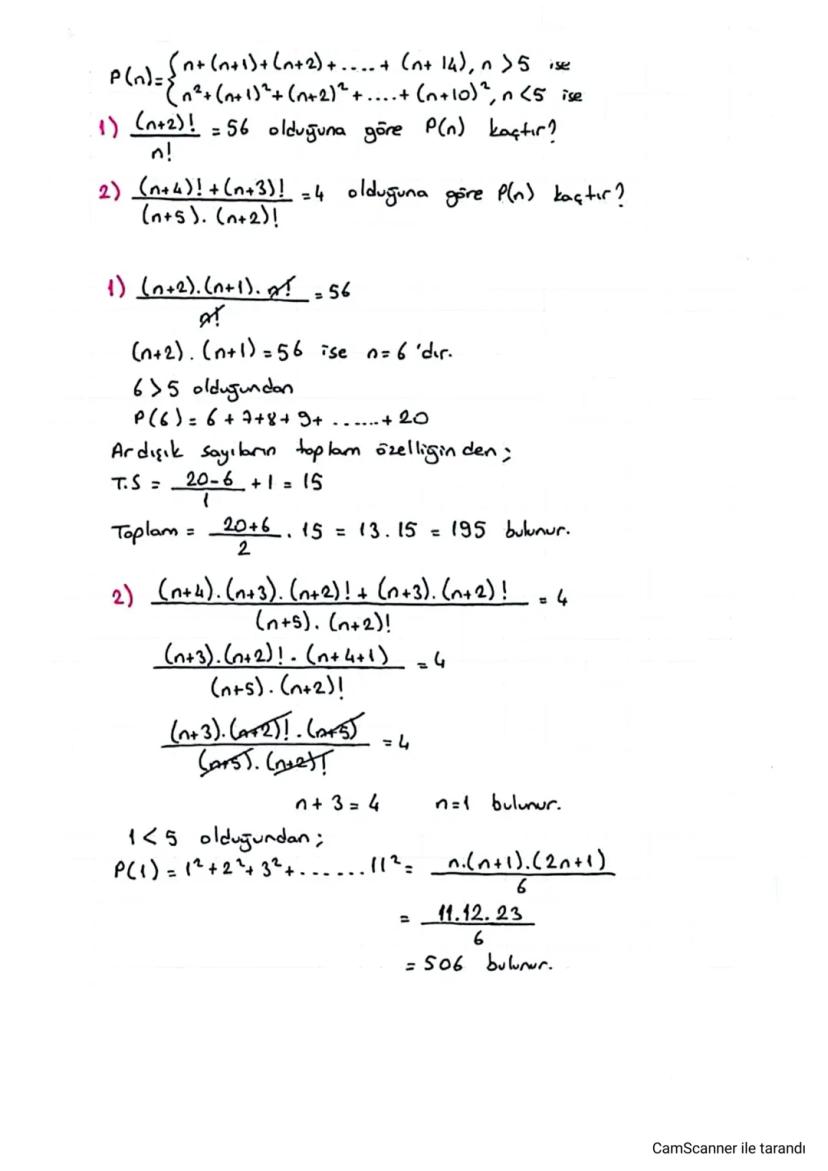 P(n)={n+(n+1)+(n+2)+....+(n+14), n>5 ise
n²+(n+1)²+(n+2)²+....+(n+10)², n<5 ise
1) (n+2)!/n! = 56 olduğuna göre P(n) kaçtır?
2) (n+4)!+(n+3)!/(n+5).(n+2)! = 4 olduğuna göre P(n) kaçtır?
1) (n+2).(n+1).n!/n! = 56
(n+2).(n+1)=56 ise n=6'dır.
6>5 olduğundan
P(6)=6+7+8+9+.......+20
Ardışık sayıların toplam özelliğinden;
T.S = 20-6/1 +1 = 15
Toplam = 20+6/2 . 15 = 13.15 = 195 bulunur.
2) (n+4).(n+3).(n+2)!+(n+3).(n+2)!/(n+5).(n+2)! = 4
(n+3).(n+2)!.(n+4+1)/(n+5).(n+2)! = 4
(n+3).(n+2)!.(n+5)/(n+5).(n+2)! = 4
n+3=4 n=1 bulunur.
1<5 olduğundan;
P(1)=1²+2²+3²+.......11²= n.(n+1).(2n+1)/6
= 11.12.23/6
= 506 bulunur.
CamScanner ile tarandı